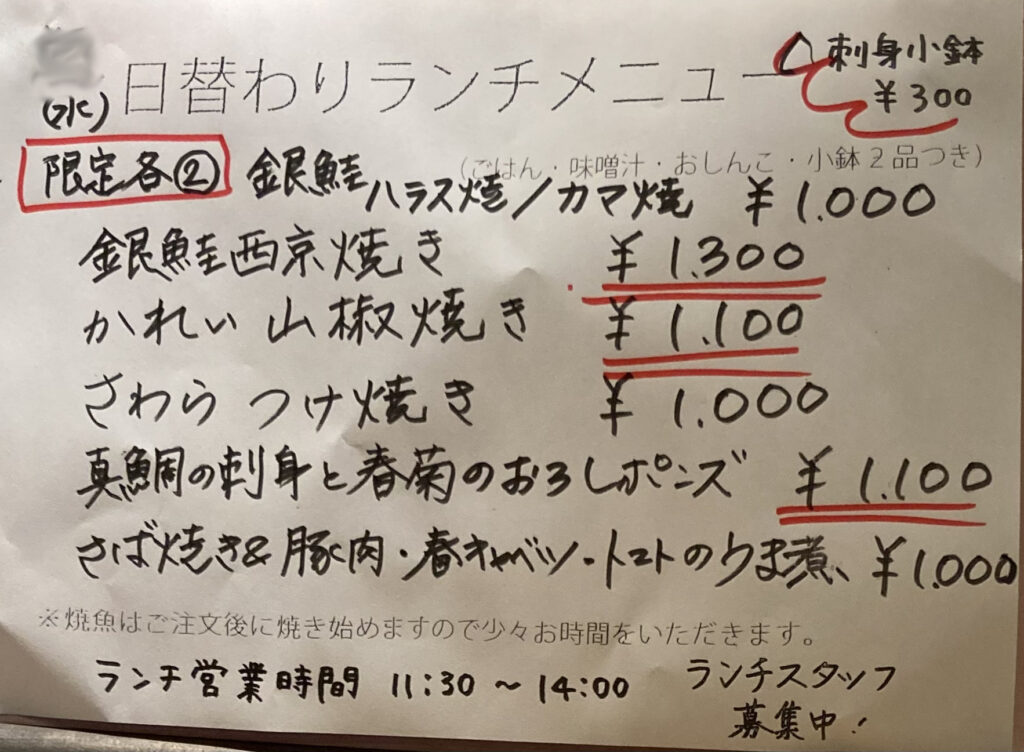 日替わりランチメニュー
刺身小鉢
¥300
(水)
(ごはん・味噌汁・おしんこ・小鉢2品つき)
限定各② 銀鮭ハラス焼/カマ焼 ¥1.000
銀鮭西京焼き ¥1.300
かれい山椒焼き ¥1.100
さわら つけ焼き ¥1.000
真鯛の刺身と春菊のおろしポンズ ¥1.100
さば焼き&豚肉・春キャベツ・トマトのうま煮、¥1.000
※焼魚はご注文後に焼き始めますので少々お時間をいただきます。
ランチ営業時間 11:30〜14:00
ランチスタッフ
募集中!